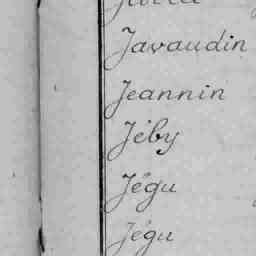 Javaudin
Jeannin
Jéby
Jégu
Jégu